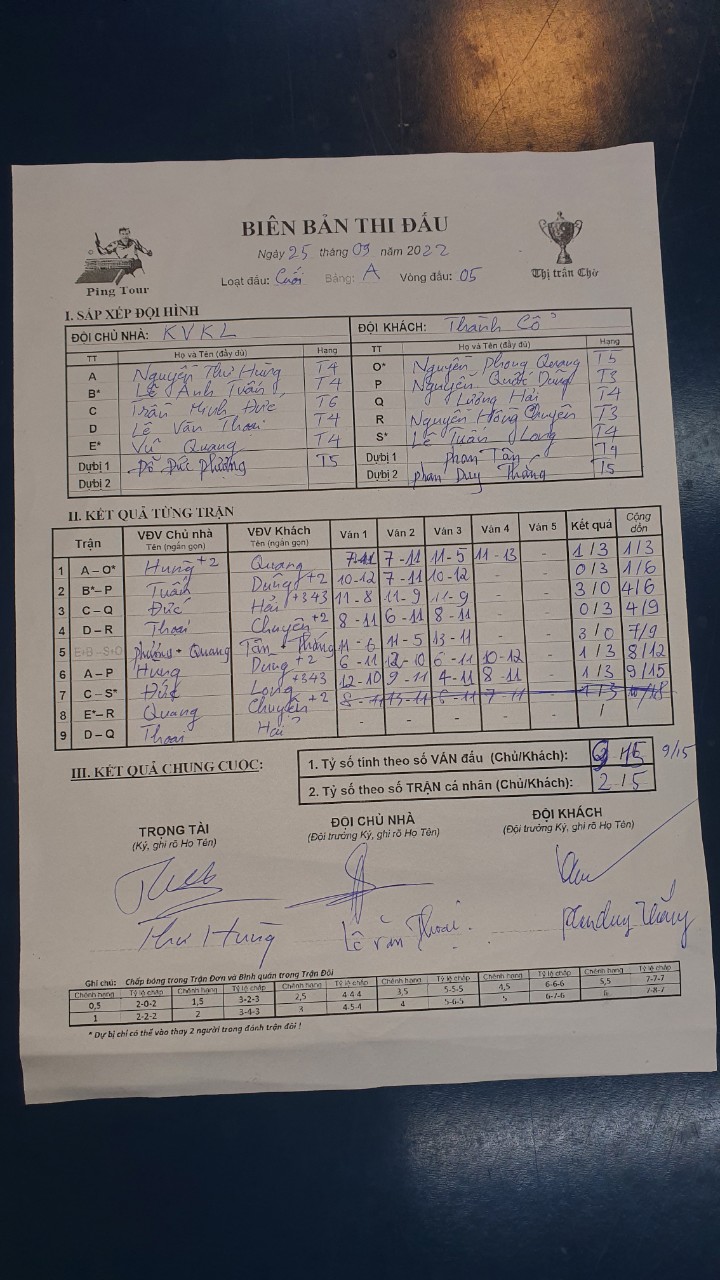 BIÊN BẢN THI ĐẤU
Ngày 25 tháng 09 năm 2022
Loạt đấu: Cuối Bảng: A Vòng đấu: 05
Ping Tour
Thị trấn Chờ
I. SẮP XẾP ĐỘI HÌNH
ĐỘI CHỦ NHÀ: KVKL ĐỘI KHÁCH: Thành Cổ
TT Họ và Tên (đầy đủ) Hạng TT Họ và Tên (đầy đủ) Hạng
A Nguyễn Thư Hùng T4 O* Nguyễn Phong Quang T5
B* Lê Anh Tuấn T4 P Nguyễn Quốc Dũng T3
C Trần Minh Đức T6 Q Lương Hải T4
D Lê Văn Thoại T4 R Nguyễn Hồng Chuyên T3
E* Vũ Quang T4 S* Lê Tuấn Long T4
Dự bị 1 Đỗ Đức Phượng T5 Dự bị 1 Phan Tân
Dự bị 2 Dự bị 2 Phan Duy Thắng T5
II. KẾT QUẢ TỪNG TRẬN
Trận VĐV Chủ nhà Tên (ngắn gọn) VĐV Khách Tên (ngắn gọn) Ván 1 Ván 2 Ván 3 Ván 4 Ván 5 Kết quả Cộng dồn
1 A – O* Hùng +2 Quang 7-11 7-11 11-5 11-13 - 1/3 1/3
2 B* – P Tuấn Dũng +2 10-12 7-11 10-12 - - 0/3 1/6
3 C – Q Đức Hải +343 11-8 11-9 11-9 - - 3/0 4/6
4 D – R Thoại Chuyên +2 8-11 6-11 8-11 - - 0/3 4/9
5 E+B – S+O Phượng + Quang Tân + Thắng 11-6 11-5 13-11 - - 3/0 7/9
6 A – P Hùng Dũng +2 6-11 12-10 6-11 10-12 - 1/3 8/12
7 C – S* Đức Long +343 12-10 9-11 4-11 8-11 - 1/3 9/15
8 E* – R Quang Chuyên +2 8-11 13-11 6-11 7-11 - 1/3
9 D – Q Thoại Hải - - - - - /
III. KẾT QUẢ CHUNG CUỘC:
1. Tỷ số tính theo số VÁN đấu (Chủ/Khách): 9/15
2. Tỷ số theo số TRẬN cá nhân (Chủ/Khách): 2/5
TRỌNG TÀI ĐỘI CHỦ NHÀ ĐỘI KHÁCH
(Ký, ghi rõ Họ Tên) (Đội trưởng Ký, ghi rõ Họ Tên) (Đội trưởng Ký, ghi rõ Họ Tên)
Thư Hùng Lê Văn Thoại Phan Duy Thắng
Ghi chú: Chấp bóng trong Trận Đơn và Bình quân trong Trận Đôi
Chênh hạng Tỷ lệ chấp Chênh hạng Tỷ lệ chấp Chênh hạng Tỷ lệ chấp Chênh hạng Tỷ lệ chấp Chênh hạng Tỷ lệ chấp Chênh hạng Tỷ lệ chấp
0,5 2-0-2 1,5 3-2-3 2,5 4-4-4 3,5 5-5-5 4,5 6-6-6 5,5 7-7-7
1 2-2-2 2 3-4-3 3 4-5-4 4 5-6-5 5 6-7-6 6 7-8-7
* Dự bị chỉ có thể vào thay 2 người trong đánh trận đôi !